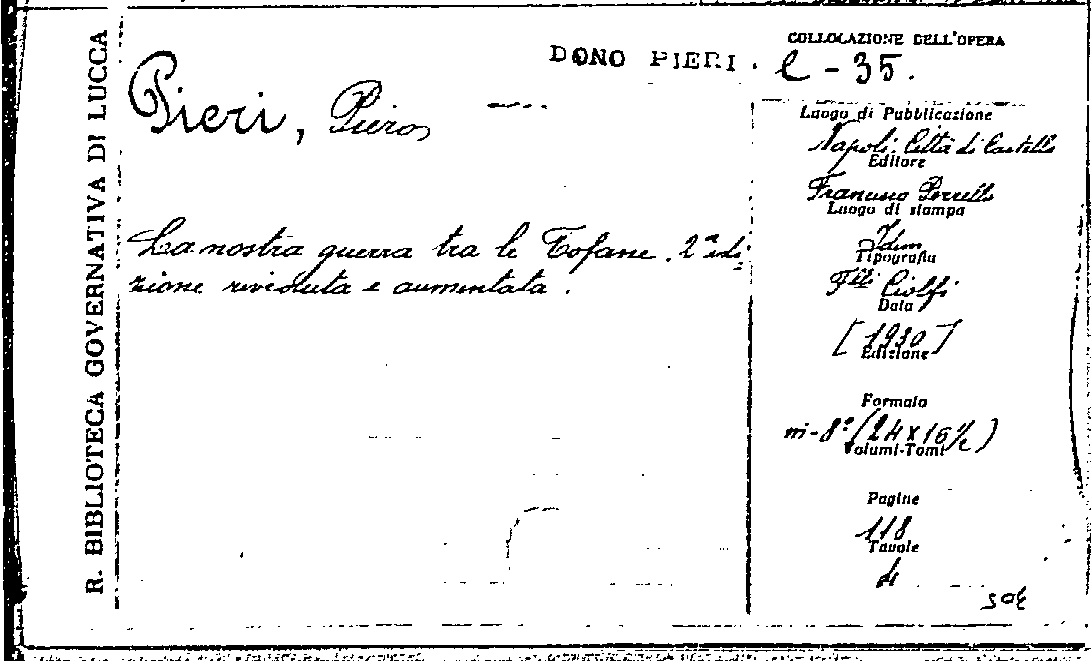 R. BIBLIOTECA GOVERNATIVA DI LUCCA
COLLOCAZIONE DELL'OPERA
DONO PIERI. C - 35.
Pieri, Piero
La nostra guerra tra le Tofane. 2ª edi-
zione riveduta e aumentata.
Luogo di Pubblicazione
Napoli. Città di Castello
Editore
Francesco Perrella
Luogo di stampa
Idem
Tipografia
F.lli Ciolfi
Data
[1930]
Edizione
Formato
in-8° (24 x 16½)
Volumi-Tomi
Pagine
118
Tavole